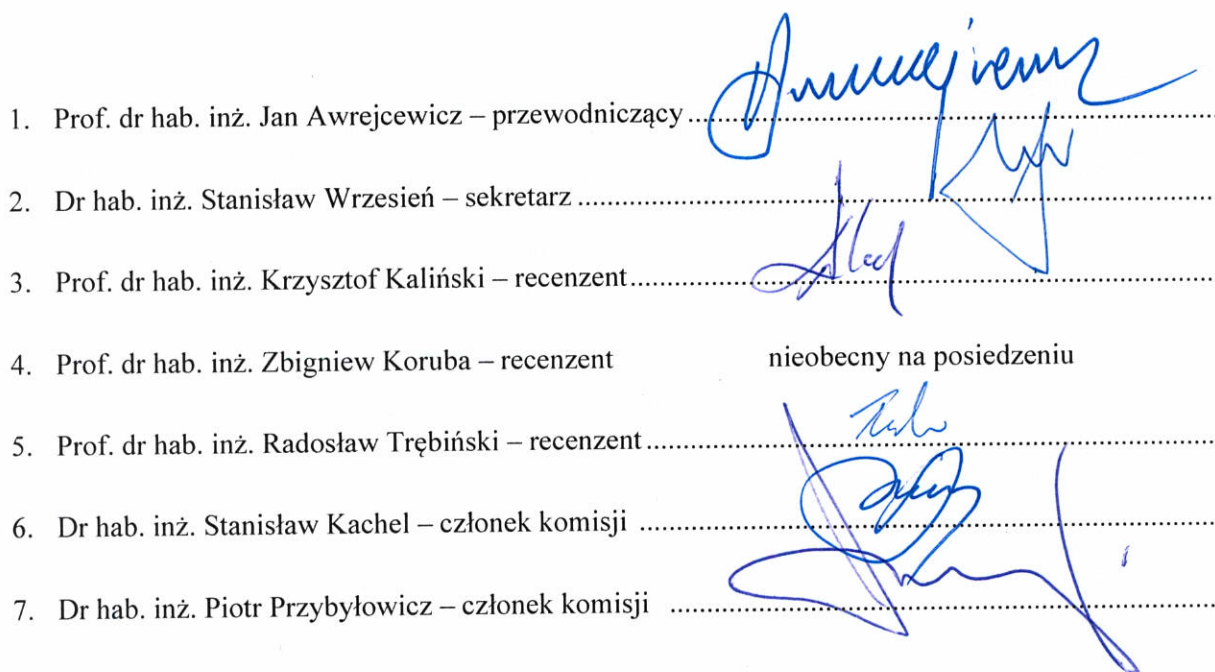 1. Prof. dr hab. inż. Jan Awrejcewicz – przewodniczący
2. Dr hab. inż. Stanisław Wrzesień – sekretarz
3. Prof. dr hab. inż. Krzysztof Kaliński – recenzent
4. Prof. dr hab. inż. Zbigniew Koruba – recenzent nieobecny na posiedzeniu
5. Prof. dr hab. inż. Radosław Trębiński – recenzent
6. Dr hab. inż. Stanisław Kachel – członek komisji
7. Dr hab. inż. Piotr Przybyłowicz – członek komisji